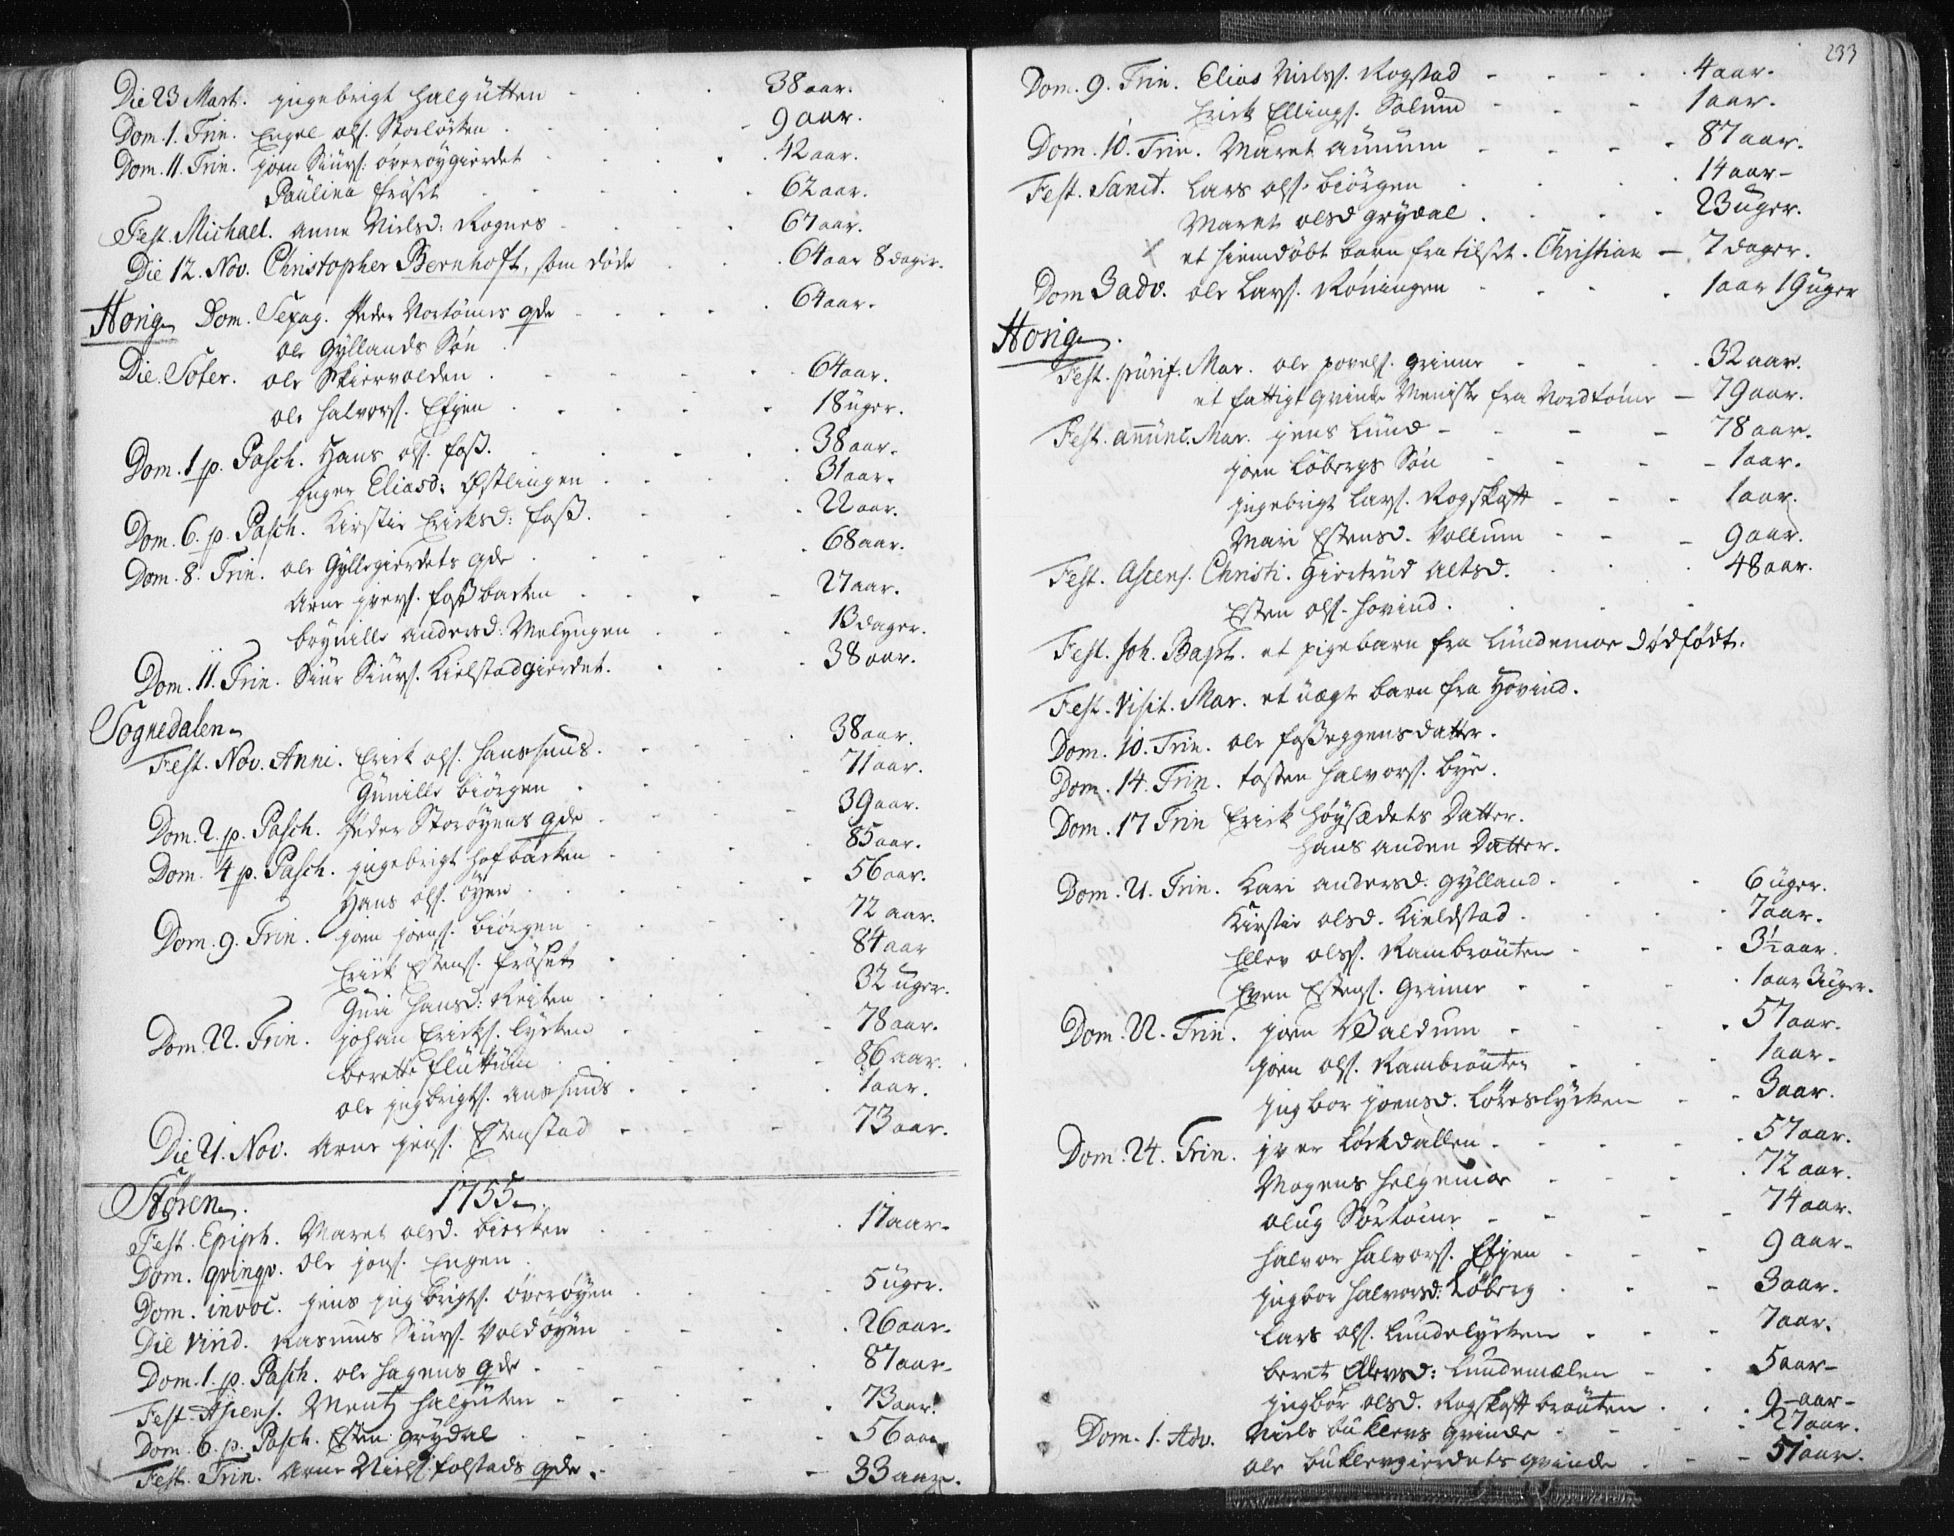 Die 23 Mart. Ingebrigt Halgutten - 38 aar.
Dom. 1. Trin. Engel Ols. Storløcken - 9 aar.
Dom. 11. Trin. Joen Siurs: Øverøygierdet - 42 aar.
Paulina Frøset - 62 aar.
Fest. Michael. Anne Nielsd: Rognes - 67 aar.
Die 12. Nov. Christopher Bernhoft, som døde - 64 aar 8 dager.
Horig Dom. Sexag. Peder Nortømes qde - 64 aar.
Ole Gyllands Søn
Die. Soter. Ole Skiervolden - 64 aar.
Ole Halvors. Efjen - 18 uger.
Dom. 1 p. Pasch. Hans Ols. Foss. - 38 aar.
Inger Eliasd: Østlingen - 31 aar.
Dom. 6. p. Pasch. Kirstie Ericksd: Foss. - 22 aar.
Dom. 8. Trin. Ole Gyllegierdets qde - 68 aar.
Arne Ivers. Fossbacken - 27 aar.
Brynille Andersd: Melyngen - 13 dager.
Dom. 11. Trin. Siur Siurs. Kielstadgierdet. - 38 aar.
Sognedalen
Fest. Nov. Anni. Erick Ols. Hanshuus. - 38 aar.
Gunille Biørgen - 71 aar.
Dom. 2. p. Pasch. Peder Storøyens qde - 39 aar.
Dom. 4 p. Pasch. Ingebrigt Hofbacken - 85 aar.
Hans Ols. Øyen - 56 aar.
Dom. 9. Trin. Joen Joens. Biørgen - 72 aar.
Erick Estens. Frøset - 84 aar
Guri Hansd: Reiten - 32 uger.
Dom. 22. Trin. Johan Ericks. Lycken - 78 aar.
Berette Fluttum - 86 aar.
Ole Ingbrigts. Aunhuus - 1 aar.
Die 21. Nov. Arne Jens. Estenstad - 73 aar.
Støren. 1755.
Fest. Epiph. Maret Olsd. Biercken - 17 aar.
Dom. qvinqv. Ole Jons. Engen
Dom. invoc. Jens Ingbrigts. Øverøyen - 5 uger.
Die Vird. Rasmus Siurs. Voldøyen - 26 aar.
Dom. 1. p. Pasch. Ole Hagens qde - 87 aar.
Fest. Ascens. Mentz Halguten - 73 aar.
Dom. 6. p. Pasch. Esten Grydal - 56 aar
Fest. Trin. Arne Niels. Folstads qde. - 33 aar.
233
Dom. 9. Trin. Elias Niels. Rogstad - 4 aar.
Erick Ellings. Solum - 1 aar.
Dom. 10. Trin. Maret Aunum - 87 aar.
Fest. Sanct. Lars Ols. Biørgen - 14 aar
Maret Olsd Grydal - 23 uger.
et hiemdøbt barn fra Tilset. Christian - 7 dager.
Dom 3 adv. Ole Lars. Røningen - 1 aar 19 uger
Horig.
Fest. purif. Mar. Ole Povels. Grinne - 32 aar.
et fattigt qvinde Meniske fra Nordtøme - 79 aar.
Fest. Annunc. Mar. Jens Lund - 78 aar.
Joen Løbergs Søn - 1 aar.
Ingebrigt Lars. Rogskaft - 1 aar.
Mari Estensd. Vollum - 9 aar.
Fest. Ascens. Christi. Giertrud Altsd. - 48 aar.
Esten Ols. Hovind.
Fest. Joh. Bapt. et pigebarn fra Lundemoe dødfødt.
Fest. Visit. Mar. et uægte barn fra Hovind.
Dom. 10. Trin. Ole Fosseggens datter.
Dom. 14. Trin. Tosten Halvors. Bye.
Dom. 17 Trin Erick Høysædets Datter.
Hans anden Datter.
Dom. 21. Trin. Kari Andersd. Gylland. - 6 uger.
Kirstie Olsd. Kieldstad. - 7 aar.
Ellev Olss. Rambrøuten - 3½ aar.
Even Estens. Grinne - 1 aar 3 uger.
Dom. 22. Trin. Joen Valdum - 57 aar.
Joen Ols. Rambrøuten - 1 aar.
Ingbor Joensd. Løreslycken - 3 aar.
Dom. 24. Trin. Iver Løckdallen - 57 aar.
Mogens Helgemoe - 72 aar.
Olug Sørtøme - 74 aar.
Halvor Halvors. Efjen - 9 aar.
Ingbor Halvorsd: Løberg - 3 aar.
Lars Ols. Lundelycken - 7 aar.
Beret Ellevsd: Lundemælen - 5 aar
Ingbor Olsd. Rogskaft brøuten - 9 aar
Dom. 1. Adv. Niels Buklevs qvinde - 27 aar.
Ole Buklevgierdets qvinde - 51 aar.